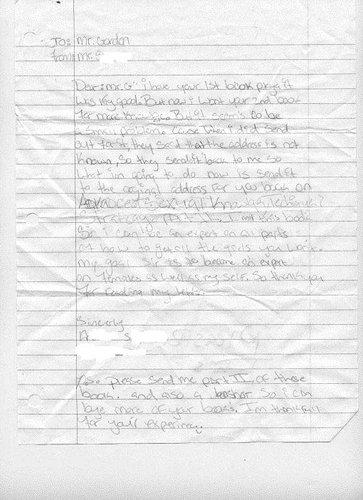 To: Mr. Gordon
from: Mr. S
Dear: Mr. G" i have your 1st book
was very good. But now i want your 2nd book
for more knowledge. But it seem's to be
a small problem. Cause when i did send
out for it, they said that the address is not
known, so they send it back to me so
what i'm going to do now is send it
to the original address for you book on
Advanced sexual
Part II, I want this book
So i can be an expert on all parts
of how to get all the girls you want.
my goal is to become an expert
on females as well as my self. So thank you
for reading my letter.
Sincerly
A s
P.S. please send me part II, of these
book. and also a broshor so i can
buye more of your books. I'm thankfull
for your experience.